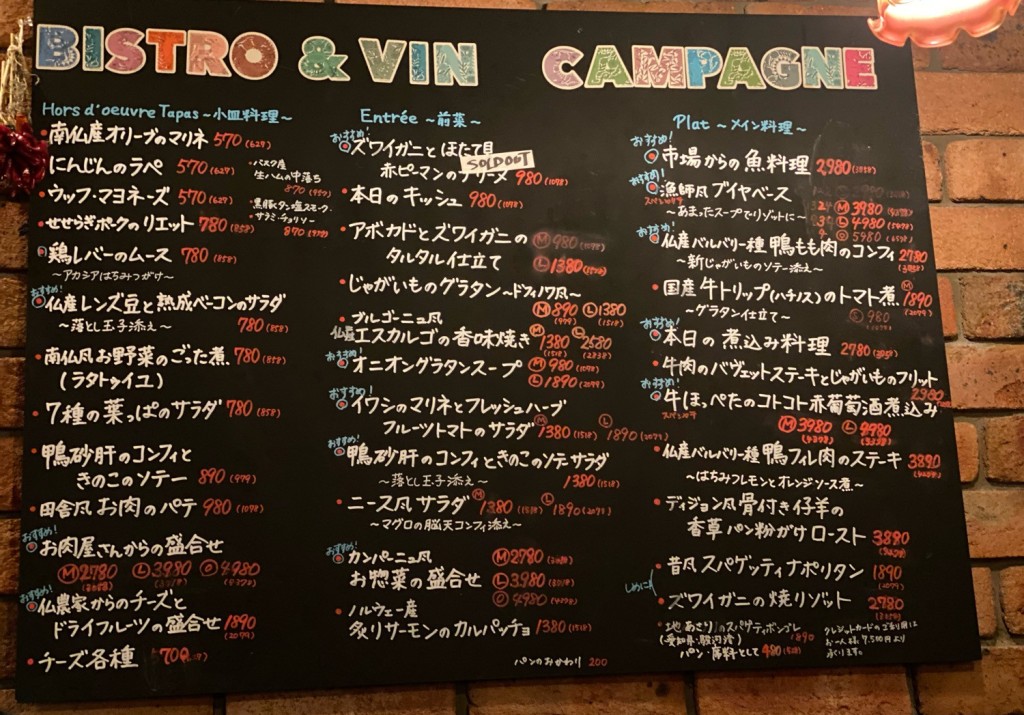 BISTRO & VIN CAMPAGNE
Hors d'oeuvre Tapas ～小皿料理～
・南仏産オリーブのマリネ 570 (627)
にんじんのラペ 570 (627)
・ウッフ・マヨネーズ 570 (627)
・せせらぎポークのリエット 780 (858)
・バスク産
生ハムの中落ち
870 (957)
・黒豚タン塩スモーク
・サラミ・チョリソー
870 (957)
鶏レバーのムース 780 (858)
～アカシアはちみつがけ～
おすすめ!
仏産レンズ豆と熟成ベーコンのサラダ
～落とし玉子添え～ 780 (858)
・南仏風お野菜のごった煮 780 (858)
(ラタトゥイユ)
・7種の葉っぱのサラダ 780 (858)
・鴨砂肝のコンフィと
きのこのソテー 890 (979)
・田舎風お肉のパテ 980 (1078)
おすすめ!
お肉屋さんからの盛合せ
Ⓜ2780 Ⓛ3980 Ⓞ4980
おすすめ!
仏農家からのチーズと
ドライフルーツの盛合せ 1890
(2079)
・チーズ各種 700
Entrée ～前菜～
おすすめ!
ズワイガニとほたて貝
赤ピーマンの SOLD OUT 980 (1078)
・本日のキッシュ 980 (1078)
・アボカドとズワイガニの Ⓜ980 (1078)
タルタル仕立て Ⓛ1380 (1518)
・じゃがいものグラタン～ドフィノワ風～
Ⓜ890 (979) Ⓛ1380 (1518)
・ブルゴーニュ風
仏産エスカルゴの香味焼き Ⓜ1380 (1518) Ⓛ2580 (2838)
おすすめ!
オニオングラタンスープ Ⓜ980 (1078)
Ⓛ1890 (2079)
おすすめ!
イワシのマリネとフレッシュハーブ
フルーツトマトのサラダ Ⓜ1380 (1518) Ⓛ1890 (2079)
おすすめ!
鴨砂肝のコンフィときのこのソテーサラダ
～落とし玉子添え～ 1380 (1518)
・ニース風サラダ Ⓜ1380 (1518) Ⓛ1890 (2079)
～マグロの脳天コンフィ添え～
おすすめ!
カンパーニュ風 Ⓜ2780
お惣菜の盛合せ Ⓛ3980
Ⓞ4980
・ノルウェー産
炙りサーモンのカルパッチョ 1380 (1518)
パンのおかわり 200
Plat ～メイン料理～
おすすめ!
市場からの魚料理 2980
おすすめ!
漁師風ブイヤベース
スペシャリテ
～あまったスープでリゾットに～
Ⓜ3980
Ⓛ4980
Ⓞ5980
おすすめ!
仏産バルバリー種鴨もも肉のコンフィ 2780
～新じゃがいものソテー添え～
・国産牛トリップ(ハチノス)のトマト煮 Ⓜ1890
(2079)
～グラタン仕立て～ Ⓛ980
おすすめ!
本日の煮込み料理 2780
・牛肉のバヴェットステーキとじゃがいものフリット
2980
おすすめ!
牛ほっぺたのコトコト赤葡萄酒煮込み
スペシャリテ
Ⓜ3980 Ⓛ4980
・仏産バルバリー種鴨フィレ肉のステーキ 3890
～はちみつレモンとオレンジソース煮～
・ディジョン風骨付き仔羊の
香草パン粉がけロースト 3890
しめに!
・昔風スパゲッティナポリタン 1890
(2079)
・ズワイガニの焼リゾット 2780
・地あさりのスパゲティボンゴレ
(愛知県・駿河湾) 1890
パン・席料として 480 (528)
クレジットカードのご利用は
お一人様 7,500円より
承ります。